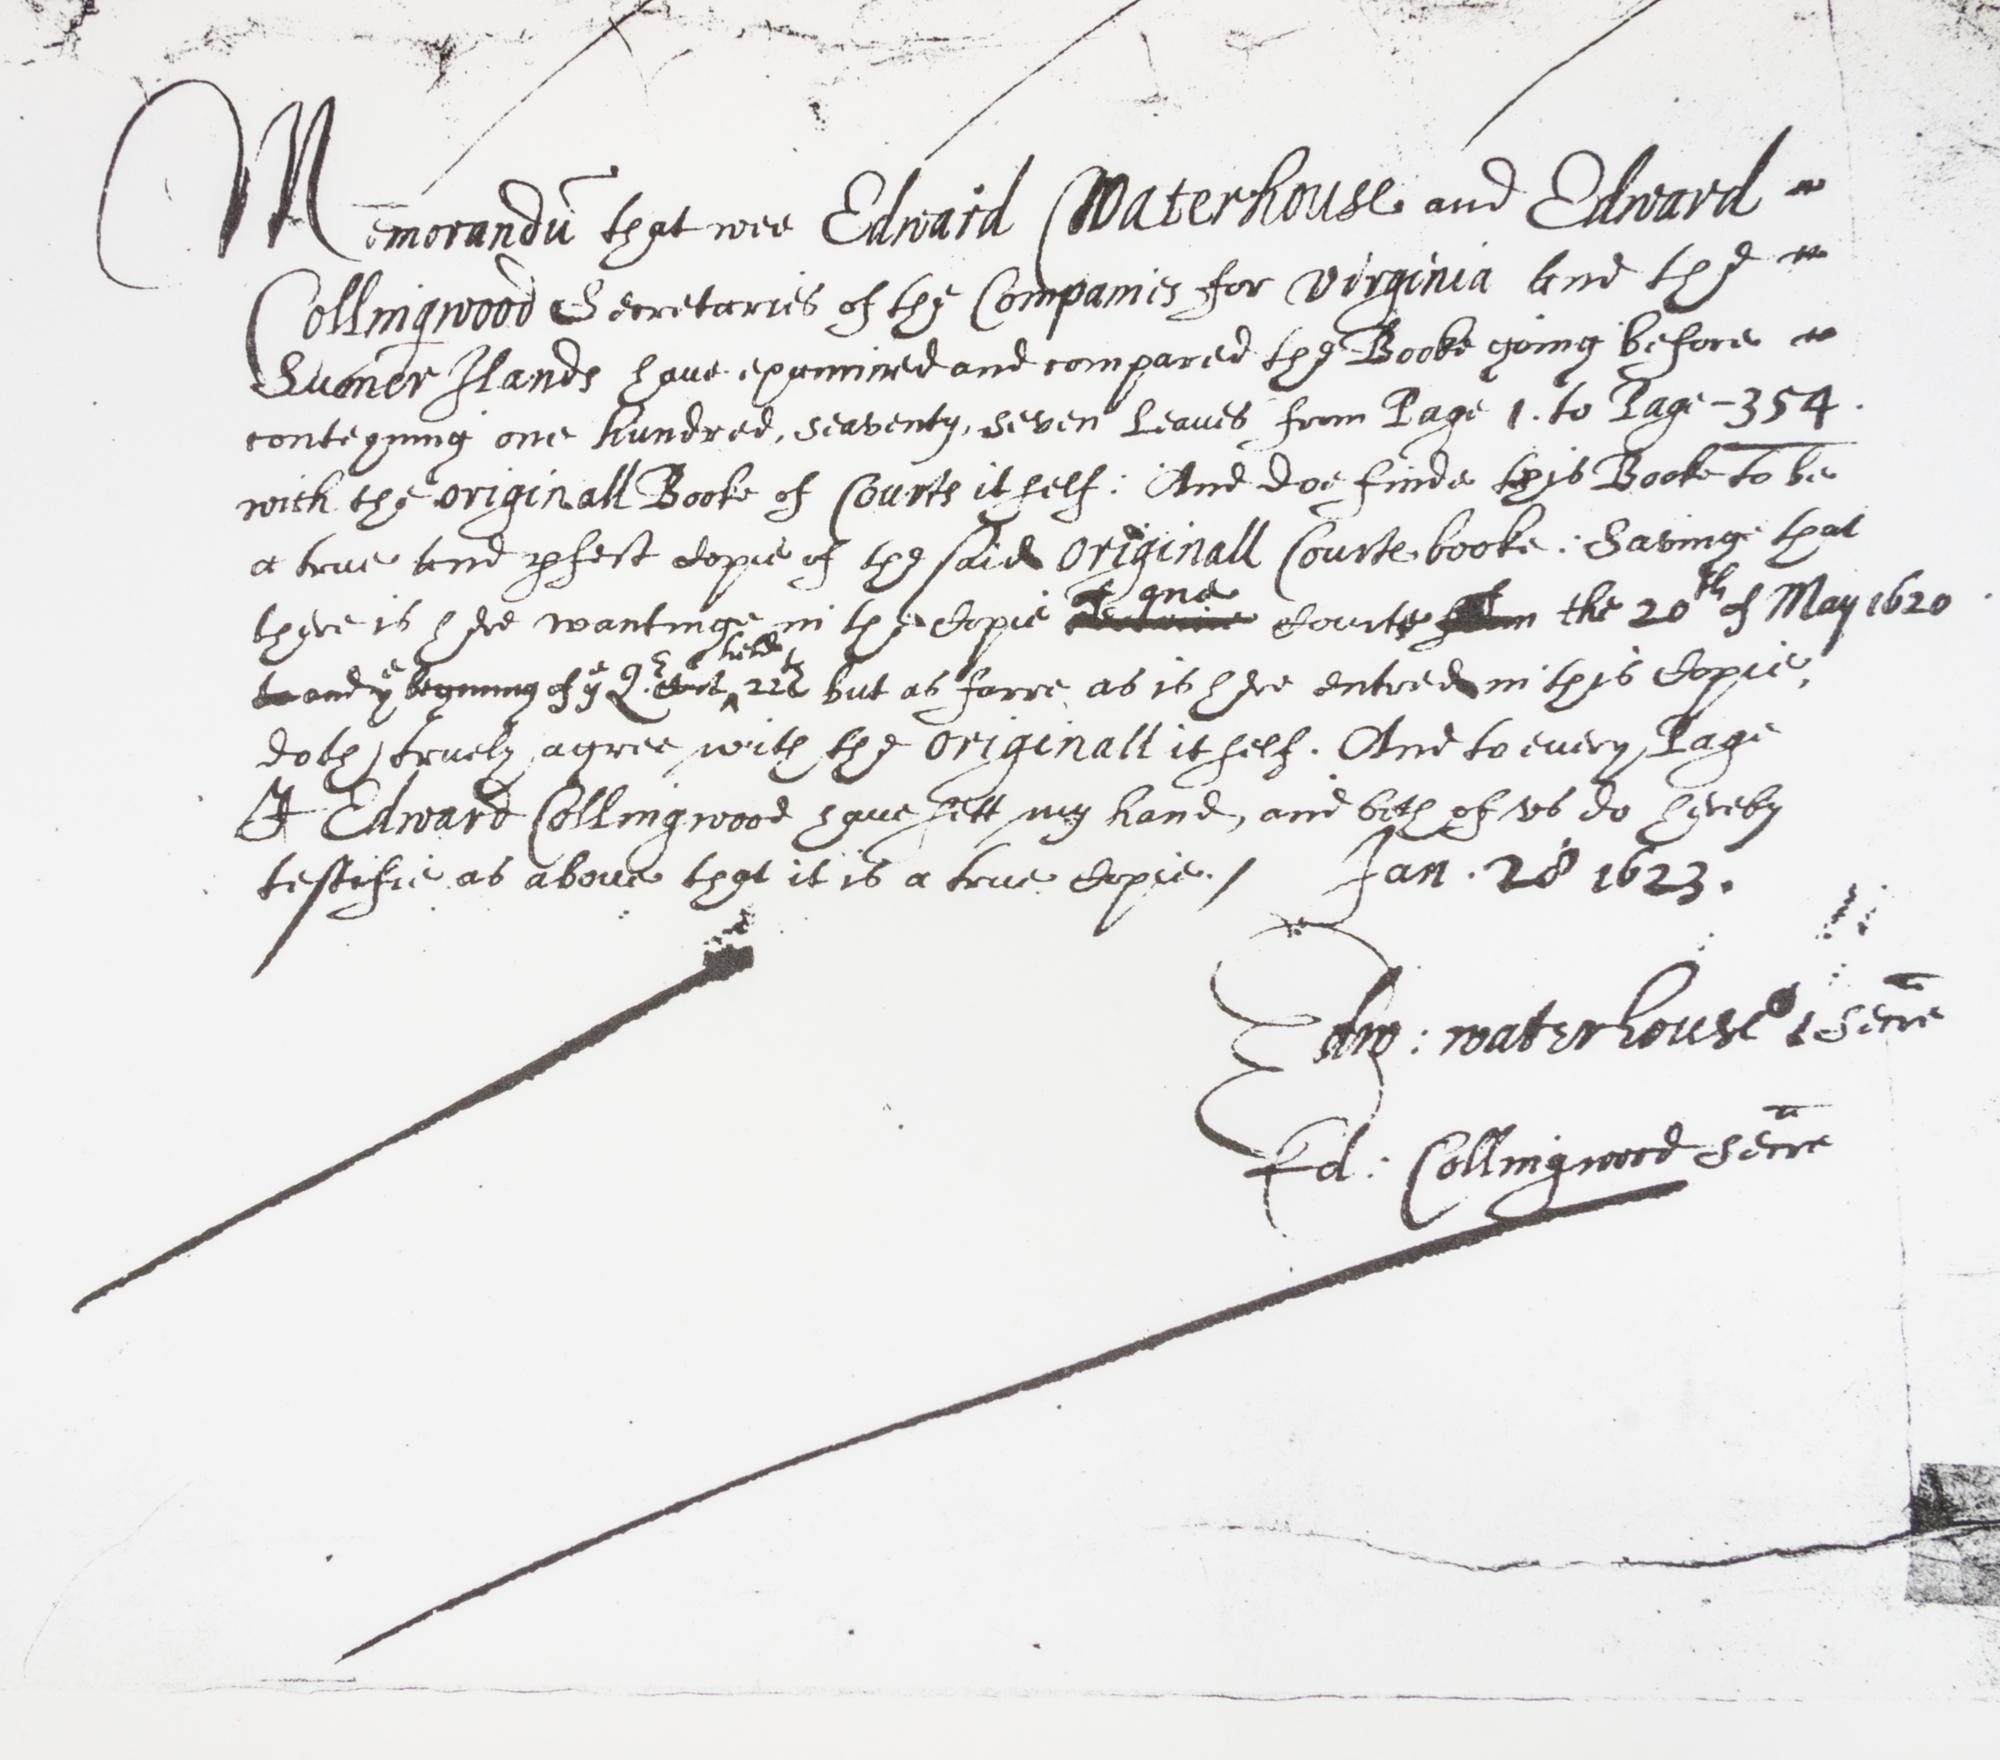 Memorandū that wee Edward Waterhouse and Edward
Collingwood Secretaries of the Companies for Virginia and the
Sumer Ilands haue examined and compared the Booke going before
conteyning one hundred, seaventy, seven Leaves from Page 1. to Page - 354.
with the originall Booke of Courts itself: And doe finde this Booke to be
a true and pfect Copie of the said originall Courte booke: Savinge that
there is here wantinge in the Copie one Courte the 20th of May 1620
and ye begining of ye Q. Court held 22th but as farre as is here entred in this Copie,
doth truely agree with the originall itself. And to every Page
I Edward Collingwood haue sett my hand, and both of vs do hereby
testifie as above that it is a true Copie. / Jan. 28 1623.
Edw: waterhouse Secre
Ed: Collingwood Secre